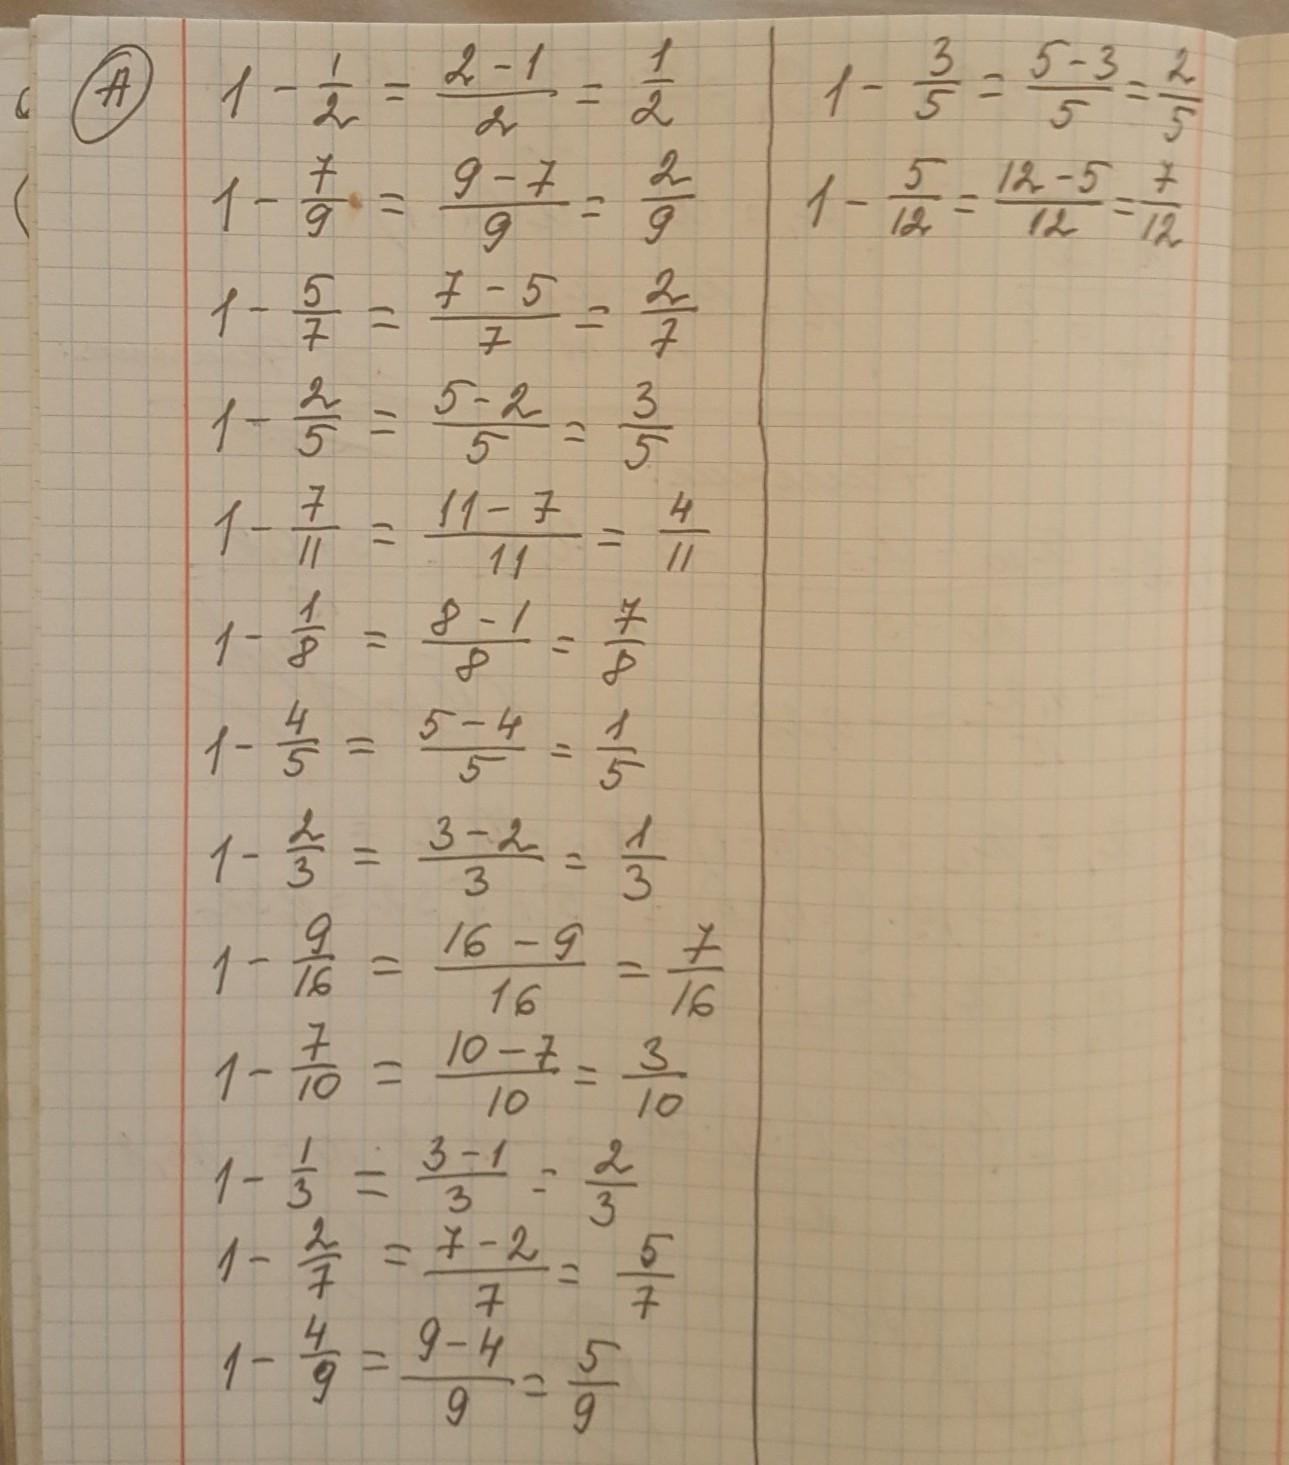 A
1 - 1/2 = (2 - 1)/2 = 1/2
1 - 7/9 = (9 - 7)/9 = 2/9
1 - 5/7 = (7 - 5)/7 = 2/7
1 - 2/5 = (5 - 2)/5 = 3/5
1 - 7/11 = (11 - 7)/11 = 4/11
1 - 1/8 = (8 - 1)/8 = 7/8
1 - 4/5 = (5 - 4)/5 = 1/5
1 - 2/3 = (3 - 2)/3 = 1/3
1 - 9/16 = (16 - 9)/16 = 7/16
1 - 7/10 = (10 - 7)/10 = 3/10
1 - 1/3 = (3 - 1)/3 = 2/3
1 - 2/7 = (7 - 2)/7 = 5/7
1 - 4/9 = (9 - 4)/9 = 5/9
1 - 3/5 = (5 - 3)/5 = 2/5
1 - 5/12 = (12 - 5)/12 = 7/12